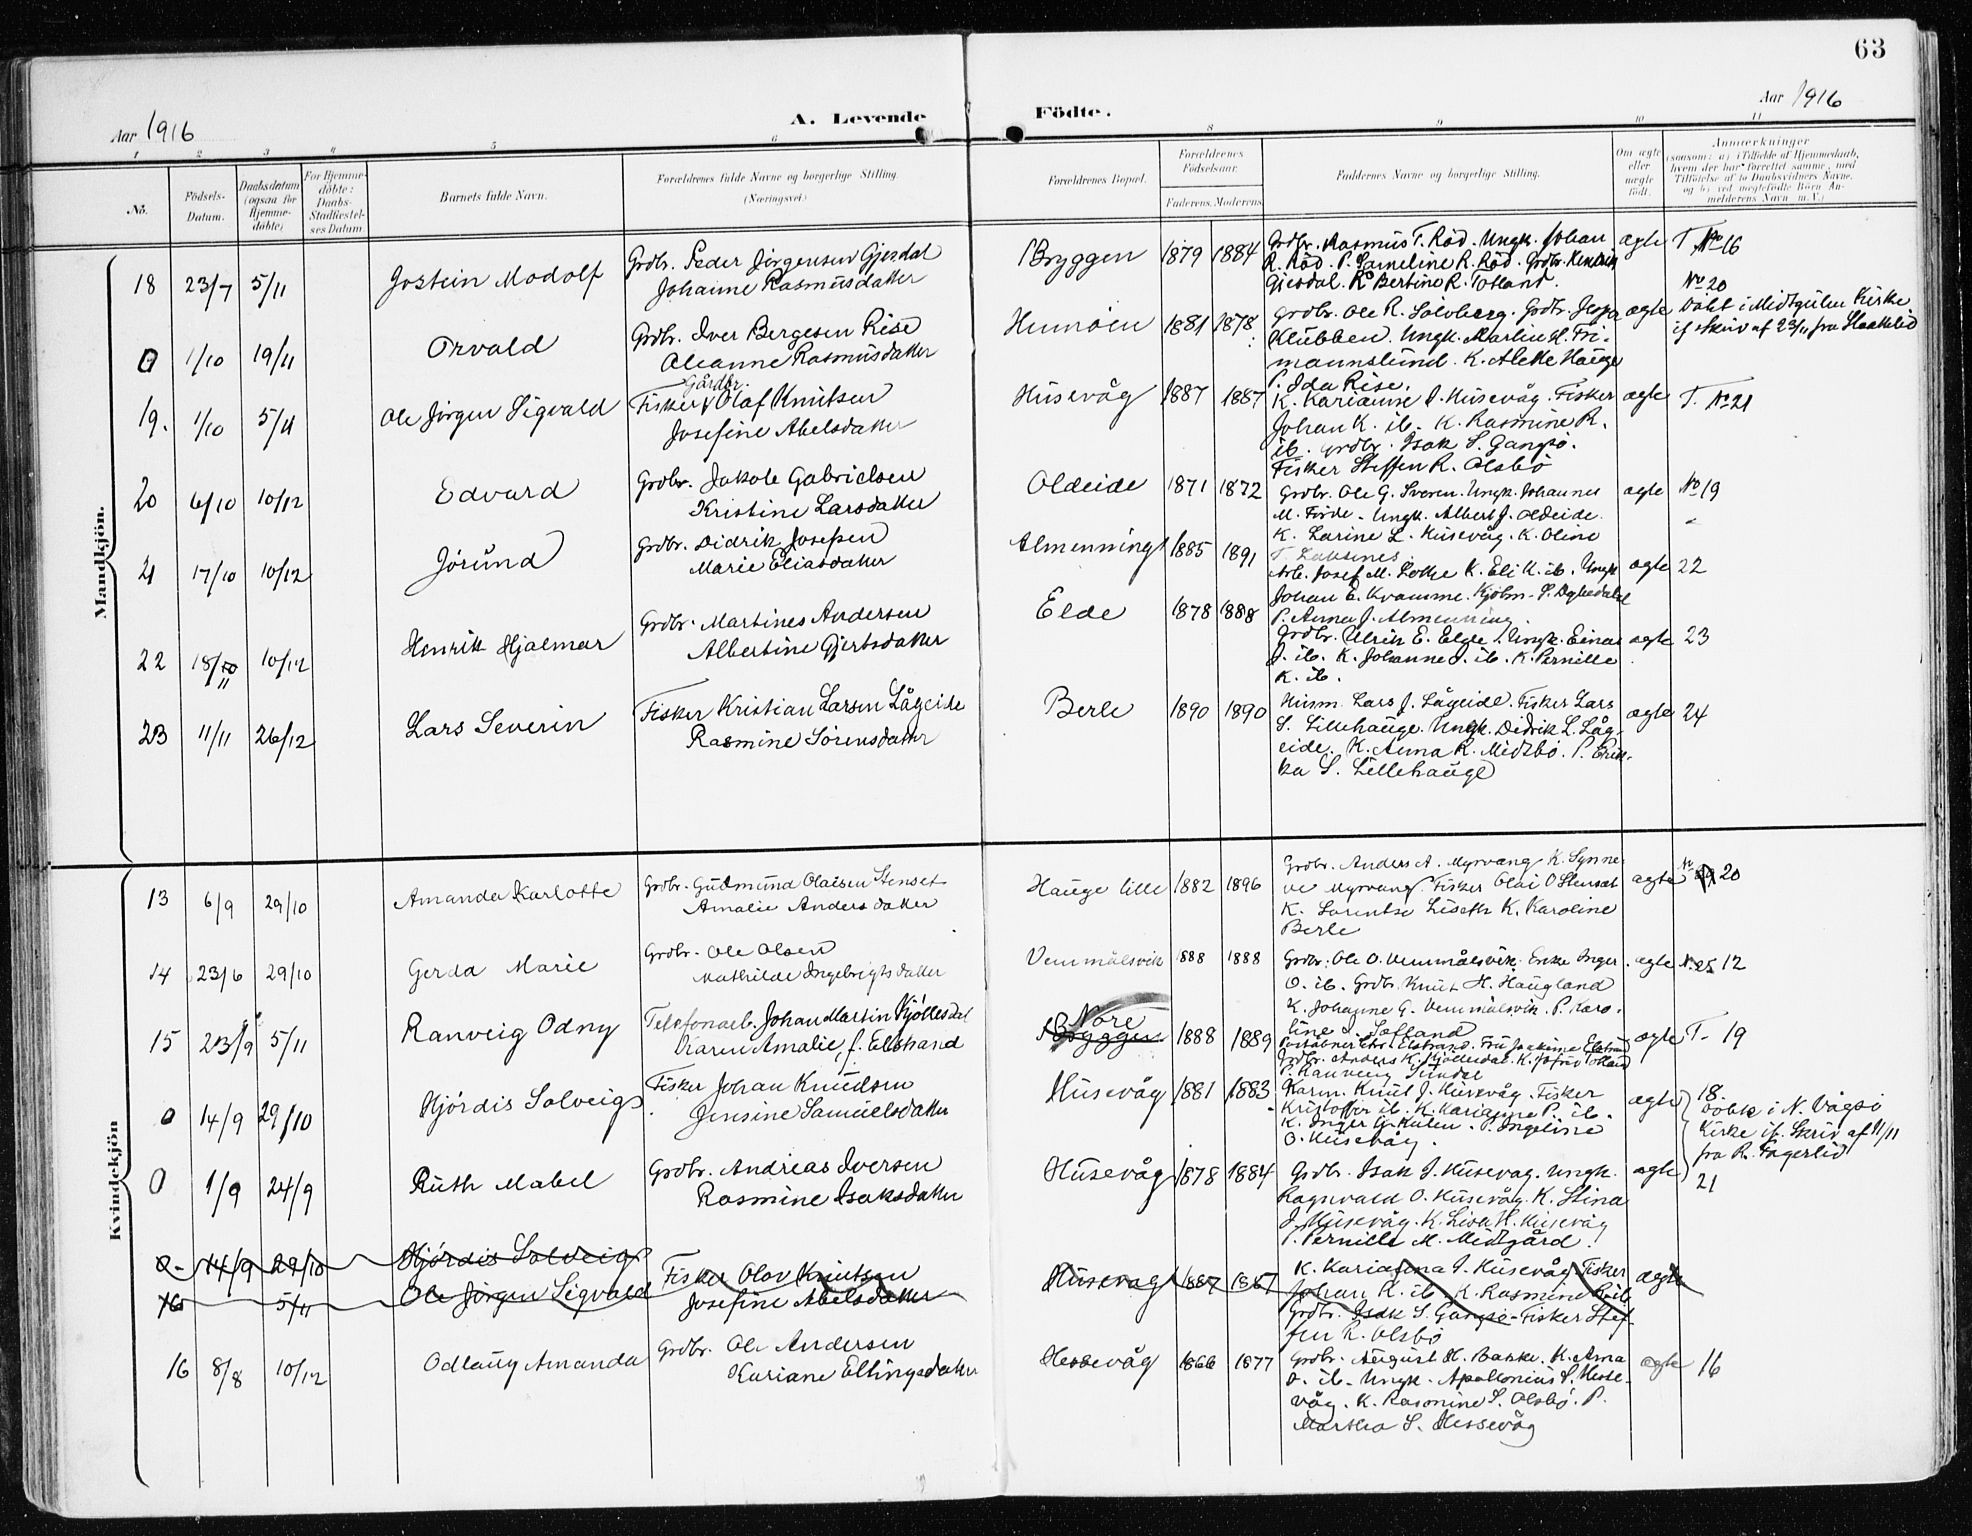 63
Aar 1916
A. Levende
Födte.
Aar 1916
1 2 3 4 5 6 8 9 10 11
No.
Födsels-
Datum.
Daabsdatum
(ogsaa for
Hjemme-
döbte)
For Hjemme-
döbte:
Daabs-
Stadfæstel-
ses Datum.
Barnets fulde Navn.
Forældrenes fulde Navne og borgerlige Stilling.
(Næringsvei.)
Forældrenes Bopæl.
Forældrenes
Födselsaar.
Faderens. Moderens.
Faddernes Navne og borgerlige Stilling.
Om ægte
eller
uægte
födt.
Anmærkninger
(saasom: a) i Tilfælde af Hjemmedaab,
hvem der har forrettet samme, med
Tilföielse af to Daabsvidners Navne,
og b) ved uægtefödte Börn An-
melderens Navn m. V.)
Mandkjön.
18 23/7 5/11 Jostein Modolf
Grdbr. Peder Jörgensen Gjesdal
Johanne Rasmusdatter
Bryggen 1879 1884
Grdbr. Rasmus T. Röd. Ungk. Johan
R. Röd. P. Lameline R. Röd. Grdbr.
Gjesdal. Bertine R. Totland.
ægte T No 16
0 1/10 19/11 Orvald
Grdbr. Iver Bergesen Rise
Oleanne Rasmusdatter
Humöen 1881 1878
Grdbr. Ole R. Solvberg. Grdbr.
Klubben. Ungk. Martin H. Fri-
mannslund. K. Hauge
P. Ida Rise.
ægte No 20
Döbt i Midtgulen Kirke
if. Skriv af 23/11 fra
19. 1/10 5/11 Ole Jörgen Sigvald
Gårdbr.
Fisker Olaf Knutsen
Josefine Abelsdatter
Husevåg 1887 1887
K. Karianne J. Husevåg. Fisker
Johan K. ib. K. Rasmine R.
ib. Grdbr. Isak S. Gangsö.
Fisker Steffen R. Olsbö
ægte T. No 21
20 6/10 10/12 Edvard
Grdbr. Jakob Gabrielsen
Kristine Larsdatter
Oldeide 1871 1872
Grdbr. Ole G. Sveren. Ungk. Johannes
M. Förde. Ungk. Albert J. Oldeide.
K. Larine L. Husevåg. K. Oline
ægte No 19
21 17/10 10/12 Jörund
Grdbr. Didrik Josefsen
Marie Eliasdatter
Almenning 1885 1891
Arb. Josef M. K. Eli K. ib. Ungk
Johan E. Kvamme. Kjöbm. S. Dybedahl
P. Anna J. Almenning.
ægte 22
22 18/11 10/12 Henrik Hjalmar
Grdbr. Martines Andersen
Albertine Gjertsdatter
Elde 1878 1888
Grdbr. Ulrik E. Elde. Ungk. Einar
J. ib. K. Johanne J. ib. K. Pernille
K. ib.
ægte 23
23 11/11 26/12 Lars Severin
Fisker Kristian Larsen Lågeide
Rasmine Sörensdatter
Berle 1890 1890
Husm. Lars J. Lågeide. Fisker Lars
S. Lillehauge. Ungk. Didrik L. Låg-
eide. K. Anna R. Midtbö. P. Erik-
ka S. Lillehauge
ægte 24
Kvindekjön
13 6/9 29/10 Amanda Karlotte
Grdbr. Gudmund Olaisen Stenset
Amalie Andersdatter
Hauge lille 1882 1896
Grdbr. Anders A. Myrvang. K. Synne-
ve Myrvang. Fisker Olai O Stenset
K. Lorentse Liseth K. Karoline
Berle
ægte No 20
14 23/6 29/10 Gerda Marie
Grdbr. Ole Olsen
Mathilde Ingebrigtsdatter
Vemmälsvik 1888 1888
Grdbr. Ole O. Vemmålsvik. Enke Inger
O. ib. Grdbr. Knut H. Haugland
K. Johanne G. Vemmälsvik. P. Karo-
line I. Totland
ægte No 25 12
15 23/9 5/11 Ranveig Odny
Telefonarb. Johan Martin Kjöllesdal
Karen Amalie, f. Elstrand
Nore
Bryggen 1888 1889
Postaabner Chr. Elstrand. Fru Elstrand
Grdbr. Anders K. Kjöllesdal. K. Totland
P. Ranveig Sundal
ægte T. 19
0 14/9 29/10 Hjördis Solveig
Fisker Johan Knudsen
Jensine Samuelsdatter
Husevåg 1881 1883
Karm. Knut J. Husevåg. Fisker
Kristoffer ib. K. Karianne P. ib.
K. Inger G. Hulen. P. Ingeline
O. Husevåg.
ægte 18.
Döbte i N. Vågsö
Kirke if. Skriv af 11/11
fra R. Fagerlid
0 1/9 24/9 Ruth Mabel
Grdbr. Andreas Iversen
Rasmine Isaksdatter
Husevåg 1878 1884
Grdbr. Isak J. Husevag. Ungk.
Ragnvald O. Husevåg. K. Stina
J. Husevåg. K. Liva H. Husevåg
P. Pernille M. Midtgård.
ægte 21
0 14/9 29/10 Hjördis Solveig
16 5/11 Ole Jörgen Sigvald
Fisker Olav Knutsen
Josefine Abelsdatter
Husevag 1887 1887
K. Karianna J. Husevåg. Fisker
Johan K. ib. K. Rasmine R. ib.
Grdbr. Isak S. Gangsö. Fisker Stef-
fen R. Olsbö
ægte
16 8/8 10/12 Odlaug Amanda
Grdbr. Ole Andersen
Kariane Ellingsdatter
Hessevåg 1866 1877
Grdbr. August H. Bakke. K. Anna
O. ib. Ungk. Apollonius S. Hesse-
våg. K. Rasmine S. Olsbö. P.
Martha S. Hessevåg
ægte 16